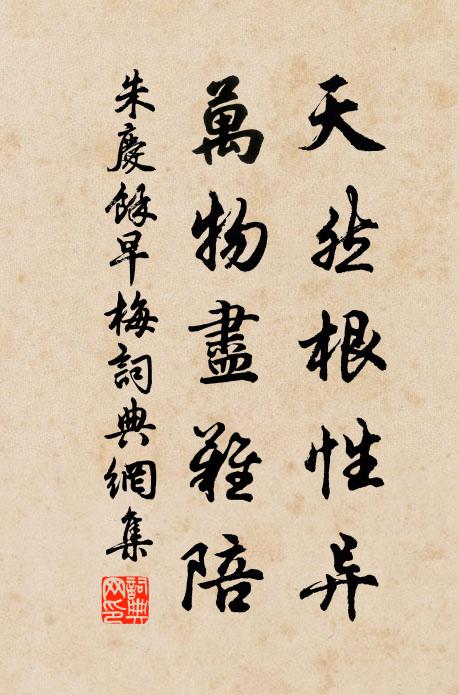 天然根性异
萬物盡難陪
朱慶餘早梅詞典網集
詞典网印